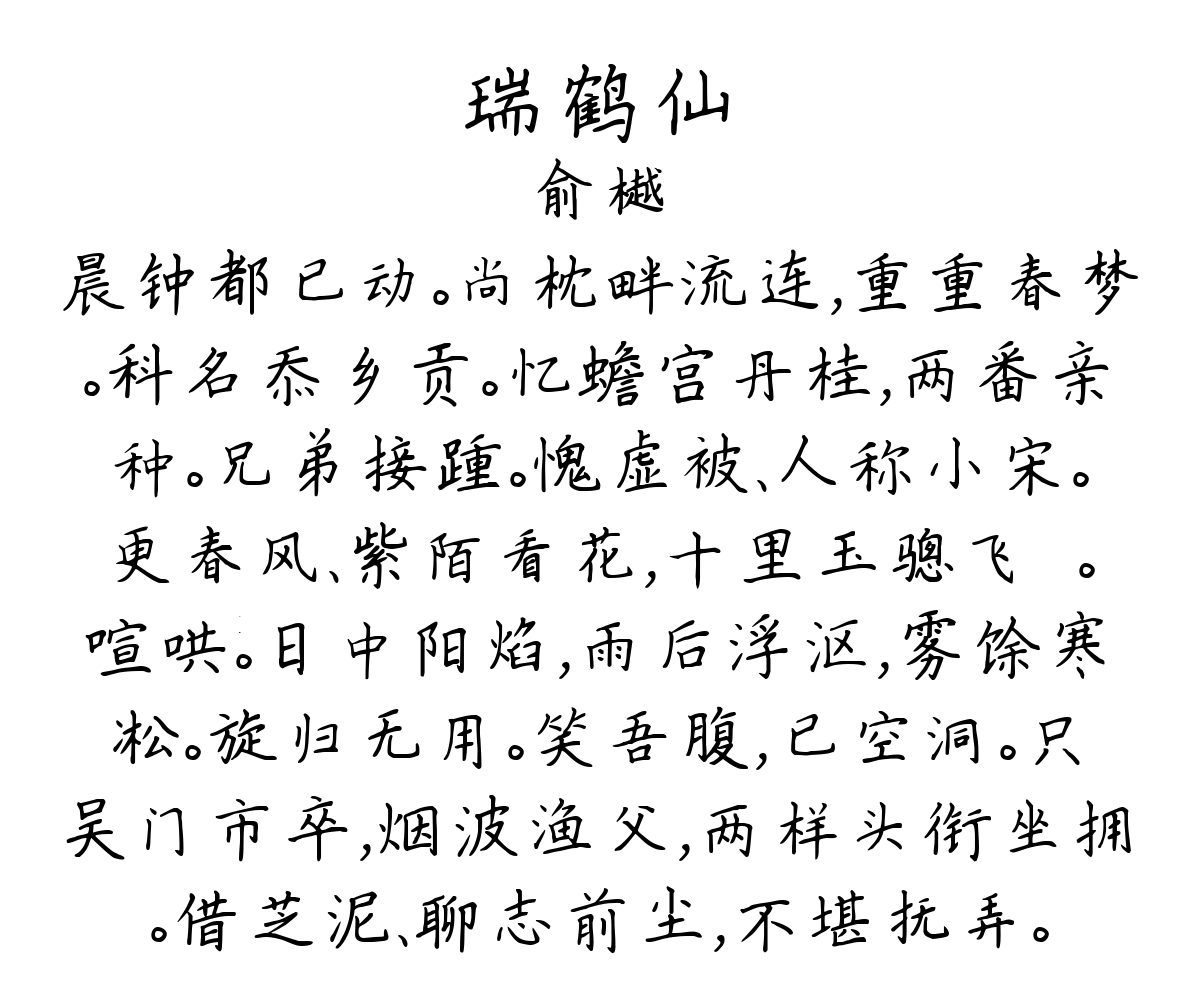 瑞鹤仙
俞樾
晨钟都已动。尚枕畔流连,重重春梦
。科名忝乡贡。忆蟾宫丹桂,两番亲
种。兄弟接踵。愧虚被、人称小宋。
更春风、紫陌看花,十里玉骢飞 。
喧哄。日中阳焰,雨后浮沤,雾馀寒
凇。旋归无用。笑吾腹,已空洞。只
吴门市卒,烟波渔父,两样头衔坐拥
。借芝泥、聊志前尘,不堪抚弄。